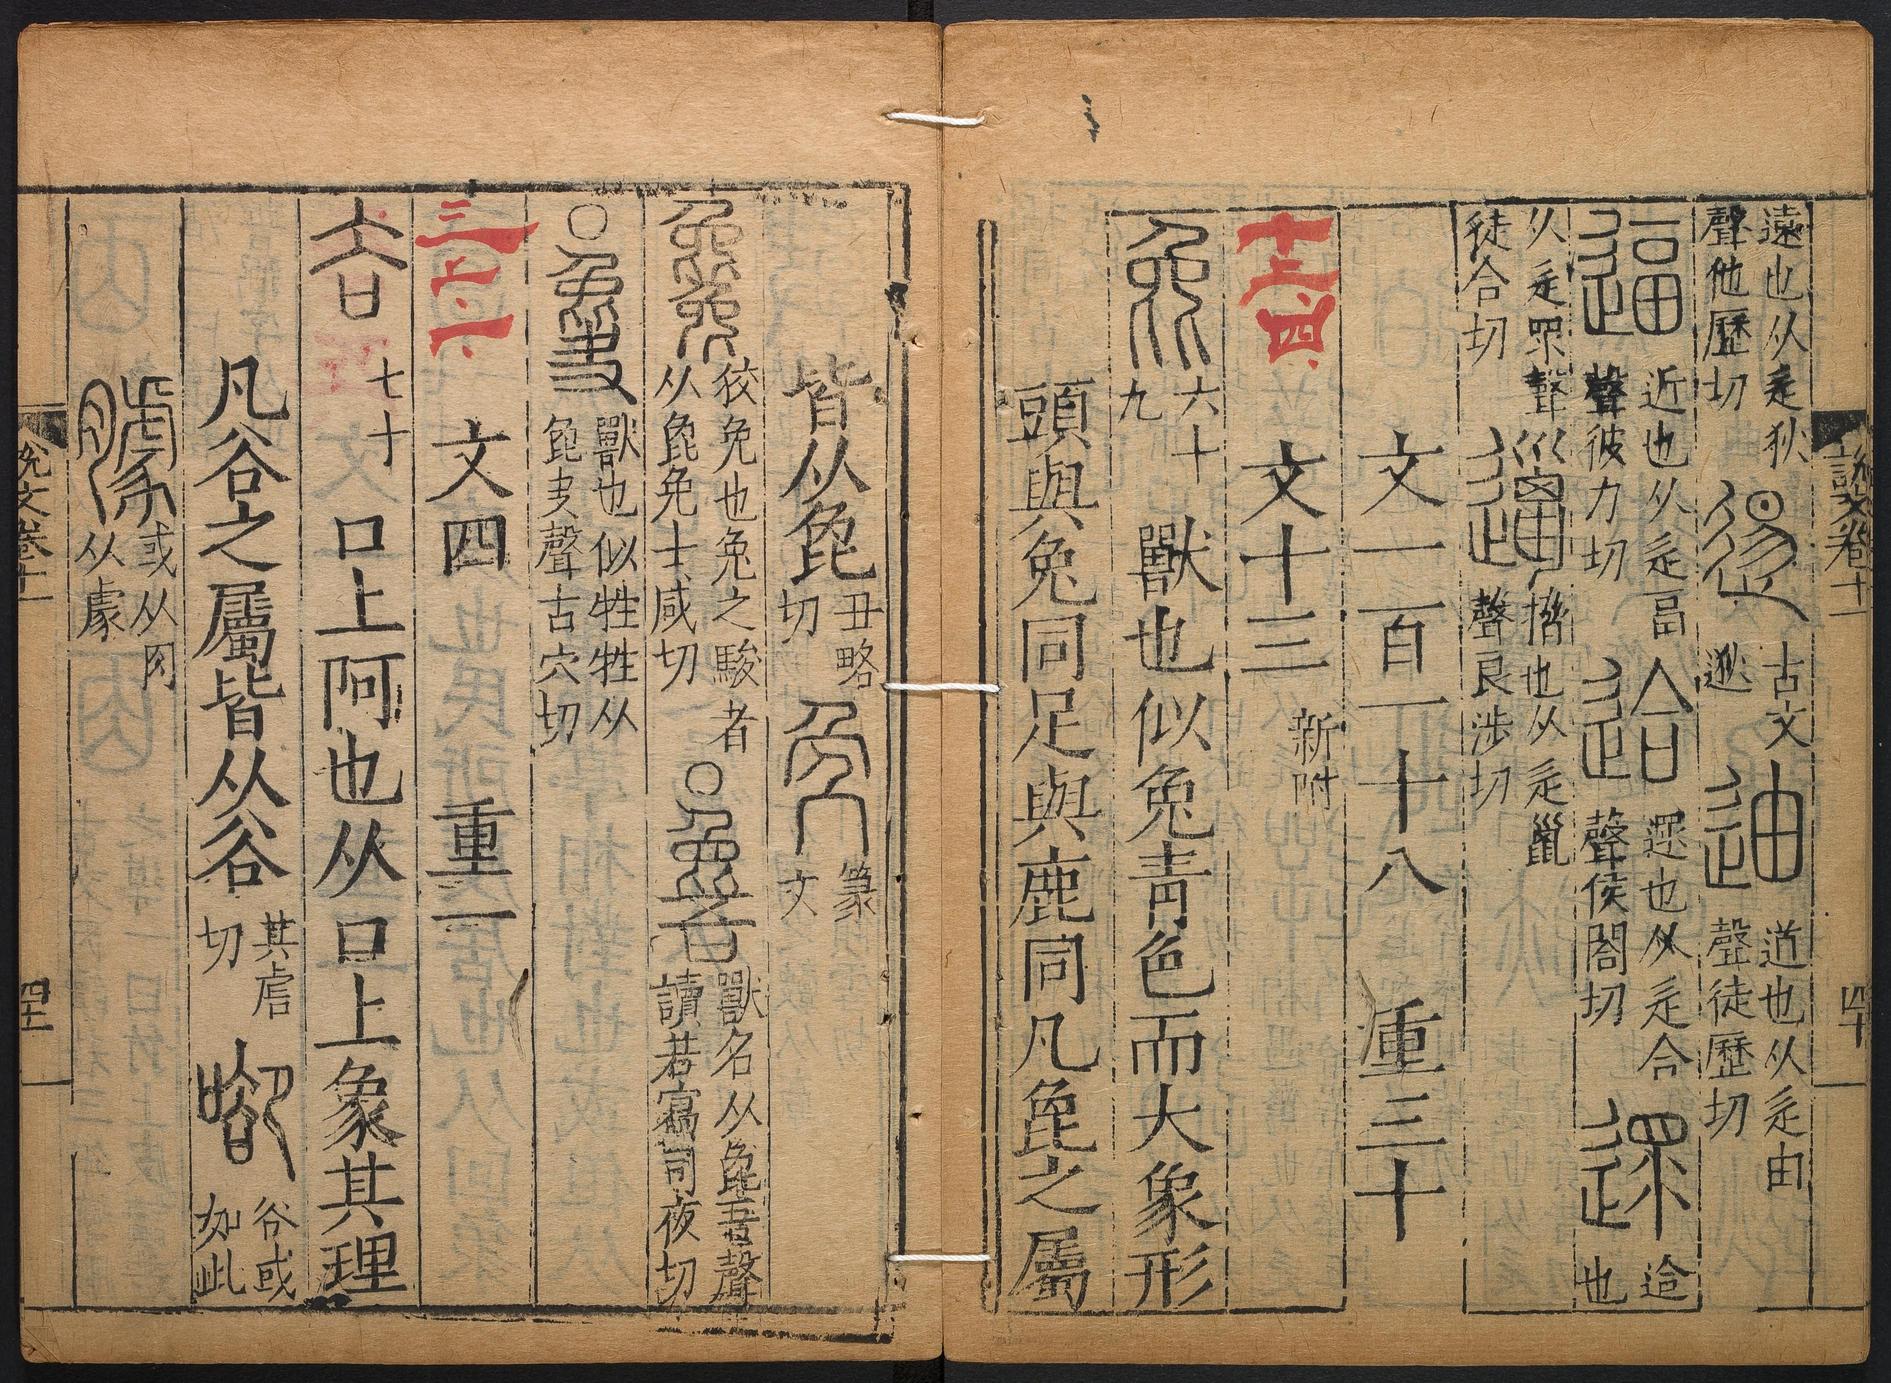 說文卷十一
四十
遠也从辵狄
聲他歷切
古文
逖
道也从辵由
聲徒歷切
近也从辵畐
聲彼力切
遝也从辵合
聲侯閤切
迨
也
从辵眾聲
徒合切
搚也从辵巤
聲良涉切
文一百一十八 重三十
十上四
文十三 新附
六十
九
獸也似兔青色而大象形
頭與兔同足與鹿同凡㲋之屬
皆从㲋
丑略
切
篆
文
狡兔也兔之駿者
从㲋兔士咸切
○
獸名从㲋吾聲
讀若寫司夜切
○
獸也似牲牲从
㲋夬聲古穴切
三上一
文四 重一
七十
口上阿也从口上象其理
凡谷之屬皆从谷
其虐
切
谷或
如此
或从肉
从豦
說文卷十一
四十一